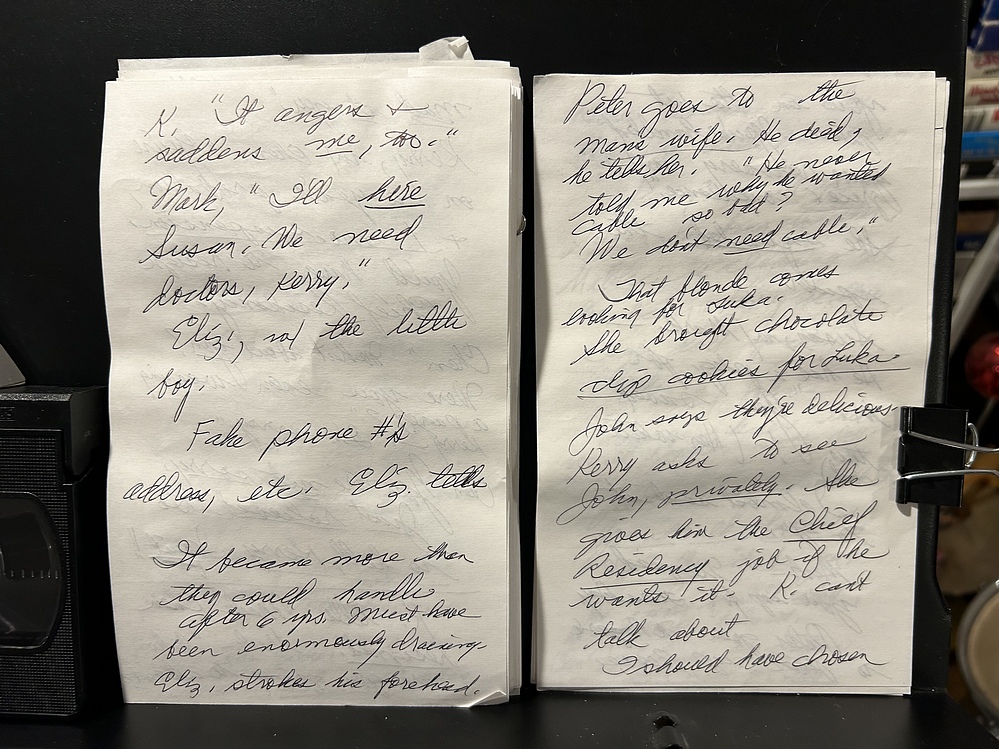 K. "It angers &
saddens me, too."
Mark, "I'll hire
Susan. We need
doctors, Kerry."
Eliz., w/ the little
boy.
Fake phone #'s
address, etc. Eliz. tells
It became more than
they could handle
after 6 yrs. Must have
been enormously draining.
Eliz. strokes his forehead.
Peter goes to the
mans wife. He died,
he tells her. "He never
told me why he wanted
cable so bad?
We don't need cable."
That blonde comes
looking for Luka.
She brought chocolate
chip cookies for Luka.
John says they're delicious.
Kerry asks to see
John, privately. She
gives him the Chief
Residency job if he
wants it. K. can't
talk about
I should have chosen